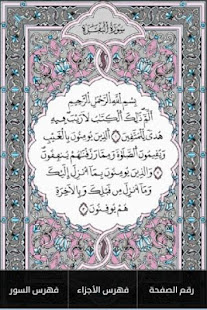 سورة البقرة
بسم الله الرحمن الرحيم
الم ذلك الكتب لا ريب فيه
هدى للمتقين الذين يؤمنون بالغيب
ويقيمون الصلوة ومما رزقنهم ينفقون
والذين يؤمنون بما أنزل إليك
وما أنزل من قبلك وبالآخرة
هم يوقنون
رقم الصفحة
فهرس الأجزاء
فهرس السور